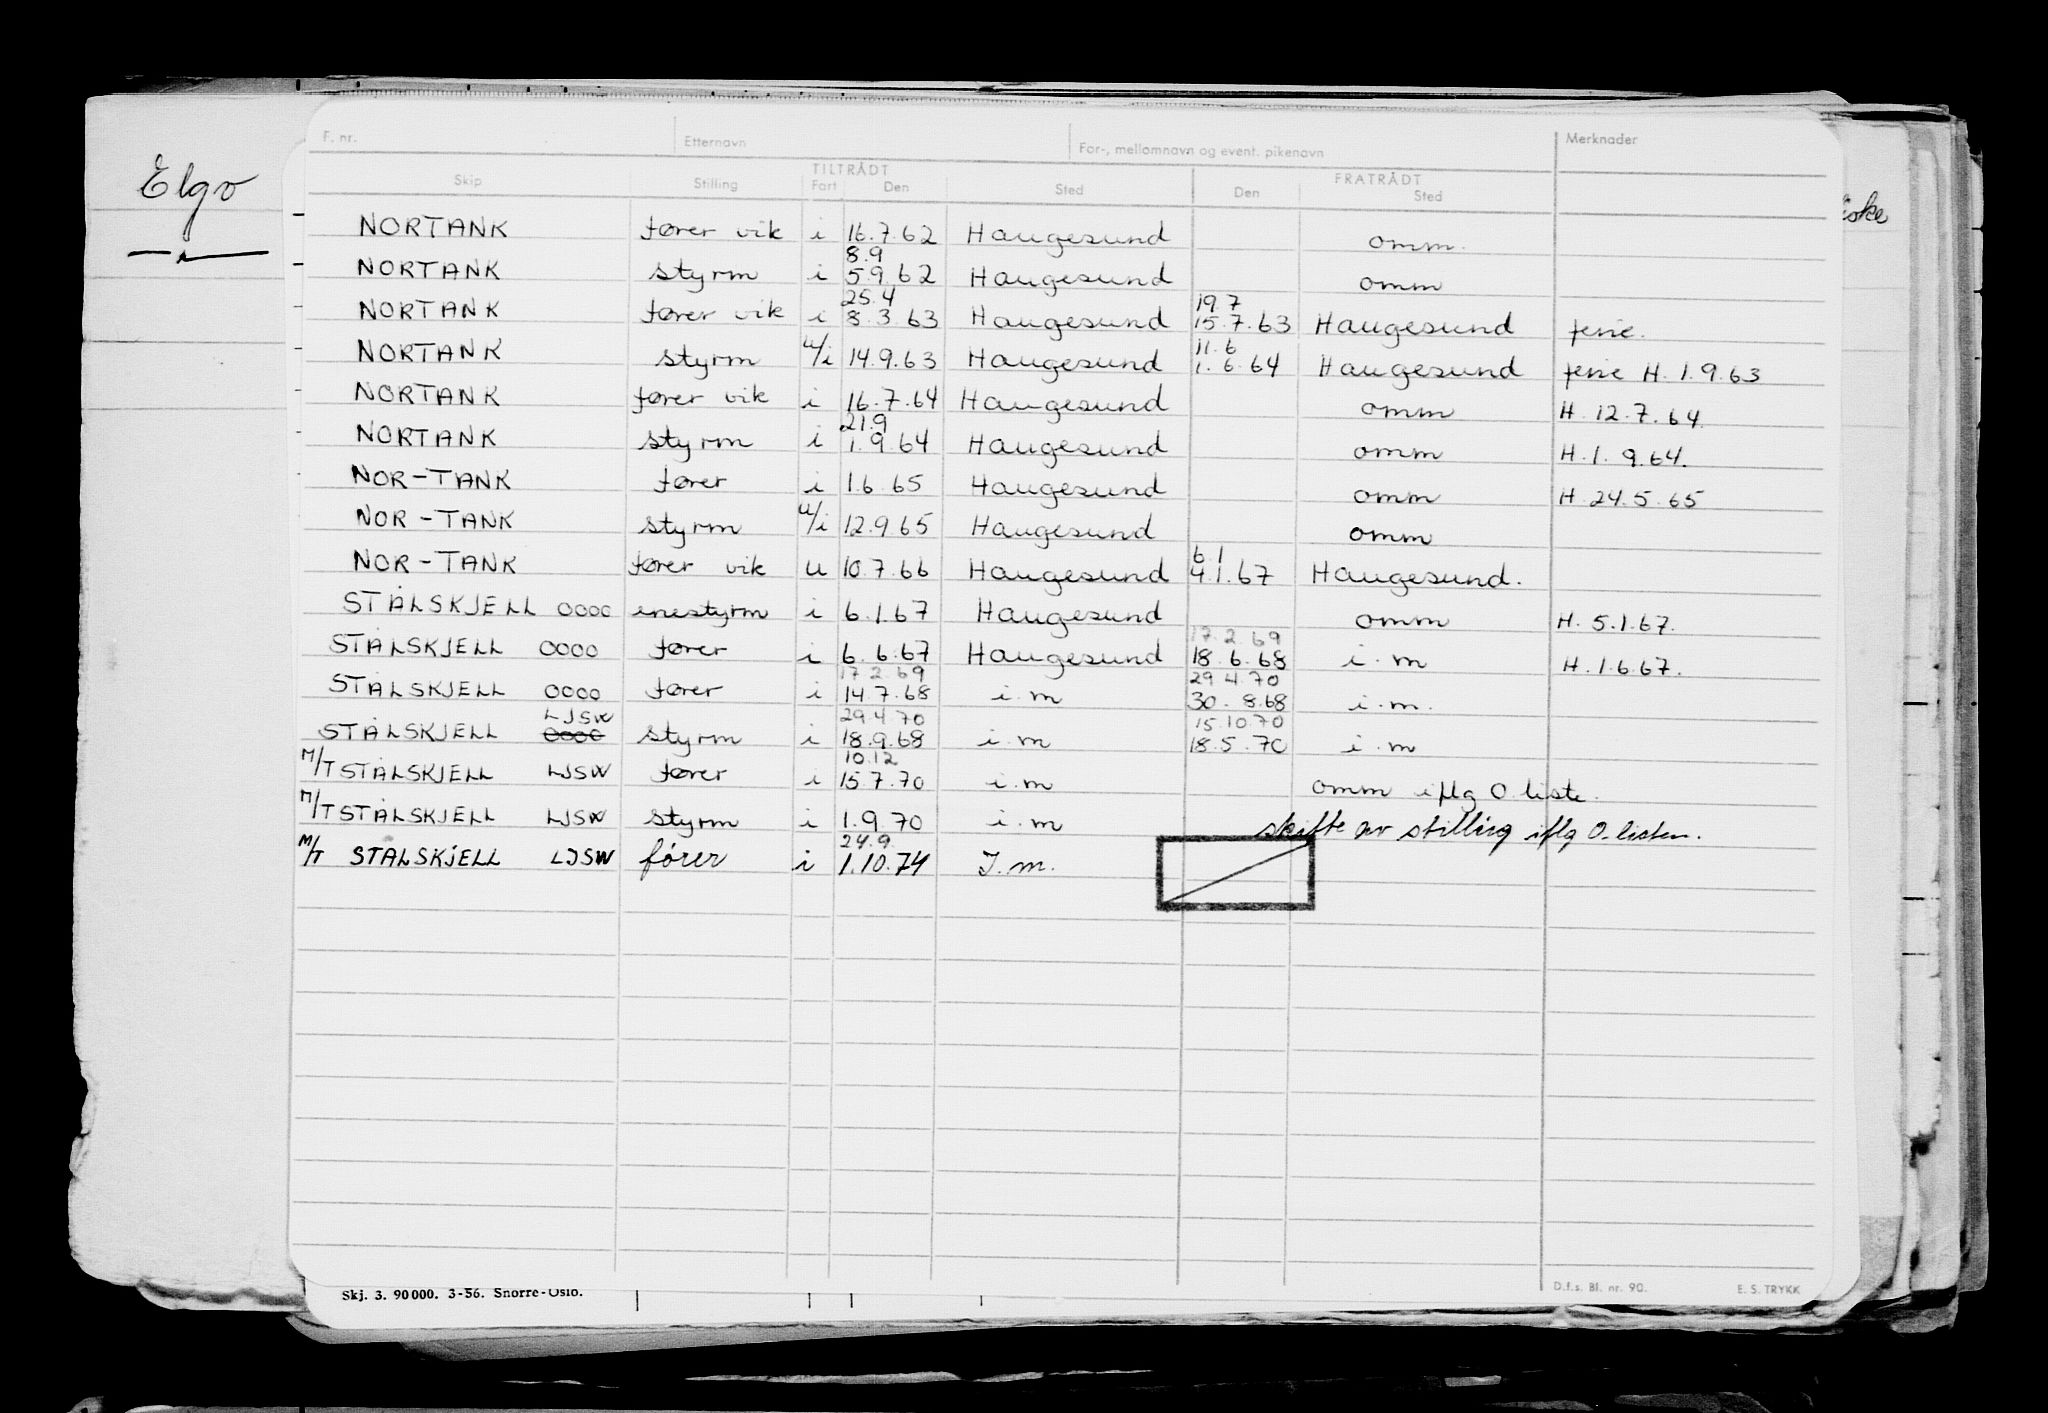 Elgv
iske
F. nr. Etternavn For-, mellomnavn og event. pikenavn Merknader
TILTRÅDT FRATRÅDT
Skip Stilling Fart Den Sted Den Sted
NORTANK fører vik i 16.7.62 Haugesund omm.
8.9
NORTANK styrm i 5.9.62 Haugesund omm
25.4 19.7
NORTANK fører vik i 8.3.63 Haugesund 15.7.63 Haugesund ferie.
11.6
NORTANK styrm u/i 14.9.63 Haugesund 1.6.64 Haugesund ferie H. 1.9.63
NORTANK fører vik i 16.7.64 Haugesund omm H. 12.7.64
21.9
NORTANK styrm i 1.9.64 Haugesund omm H. 1.9.64.
NOR-TANK fører i 1.6.65 Haugesund omm H. 24.5.65
NOR-TANK styrm u/i 12.9.65 Haugesund omm
6.1
NOR-TANK fører vik u 10.7.66 Haugesund 4.1.67 Haugesund.
STÅLSKJELL 0000 enestyrm i 6.1.67 Haugesund omm H. 5.1.67.
17.2.69
STÅLSKJELL 0000 fører i 6.6.67 Haugesund 18.6.68 i.m H. 1.6.67.
17.2.69 29.4.70
STÅLSKJELL 0000 fører i 14.7.68 i.m 30.8.68 i.m.
LJSW 29.4.70 15.10.70
STÅLSKJELL 0000 styrm i 18.9.68 i.m 18.5.70 i.m
10.12
M/T STÅLSKJELL LJSW fører i 15.7.70 i.m omm iflg O.liste.
M/T STÅLSKJELL LJSW styrm i 1.9.70 i.m skifte av stilling iflg O-listen.
24.9.
M/T STÅLSKJELL LJSW fører i 1.10.74 I.m.
D.f.s. Bl. nr. 90. E. S. TRYKK
Skj. 3. 90000. 3-56. Snorre-Oslo.